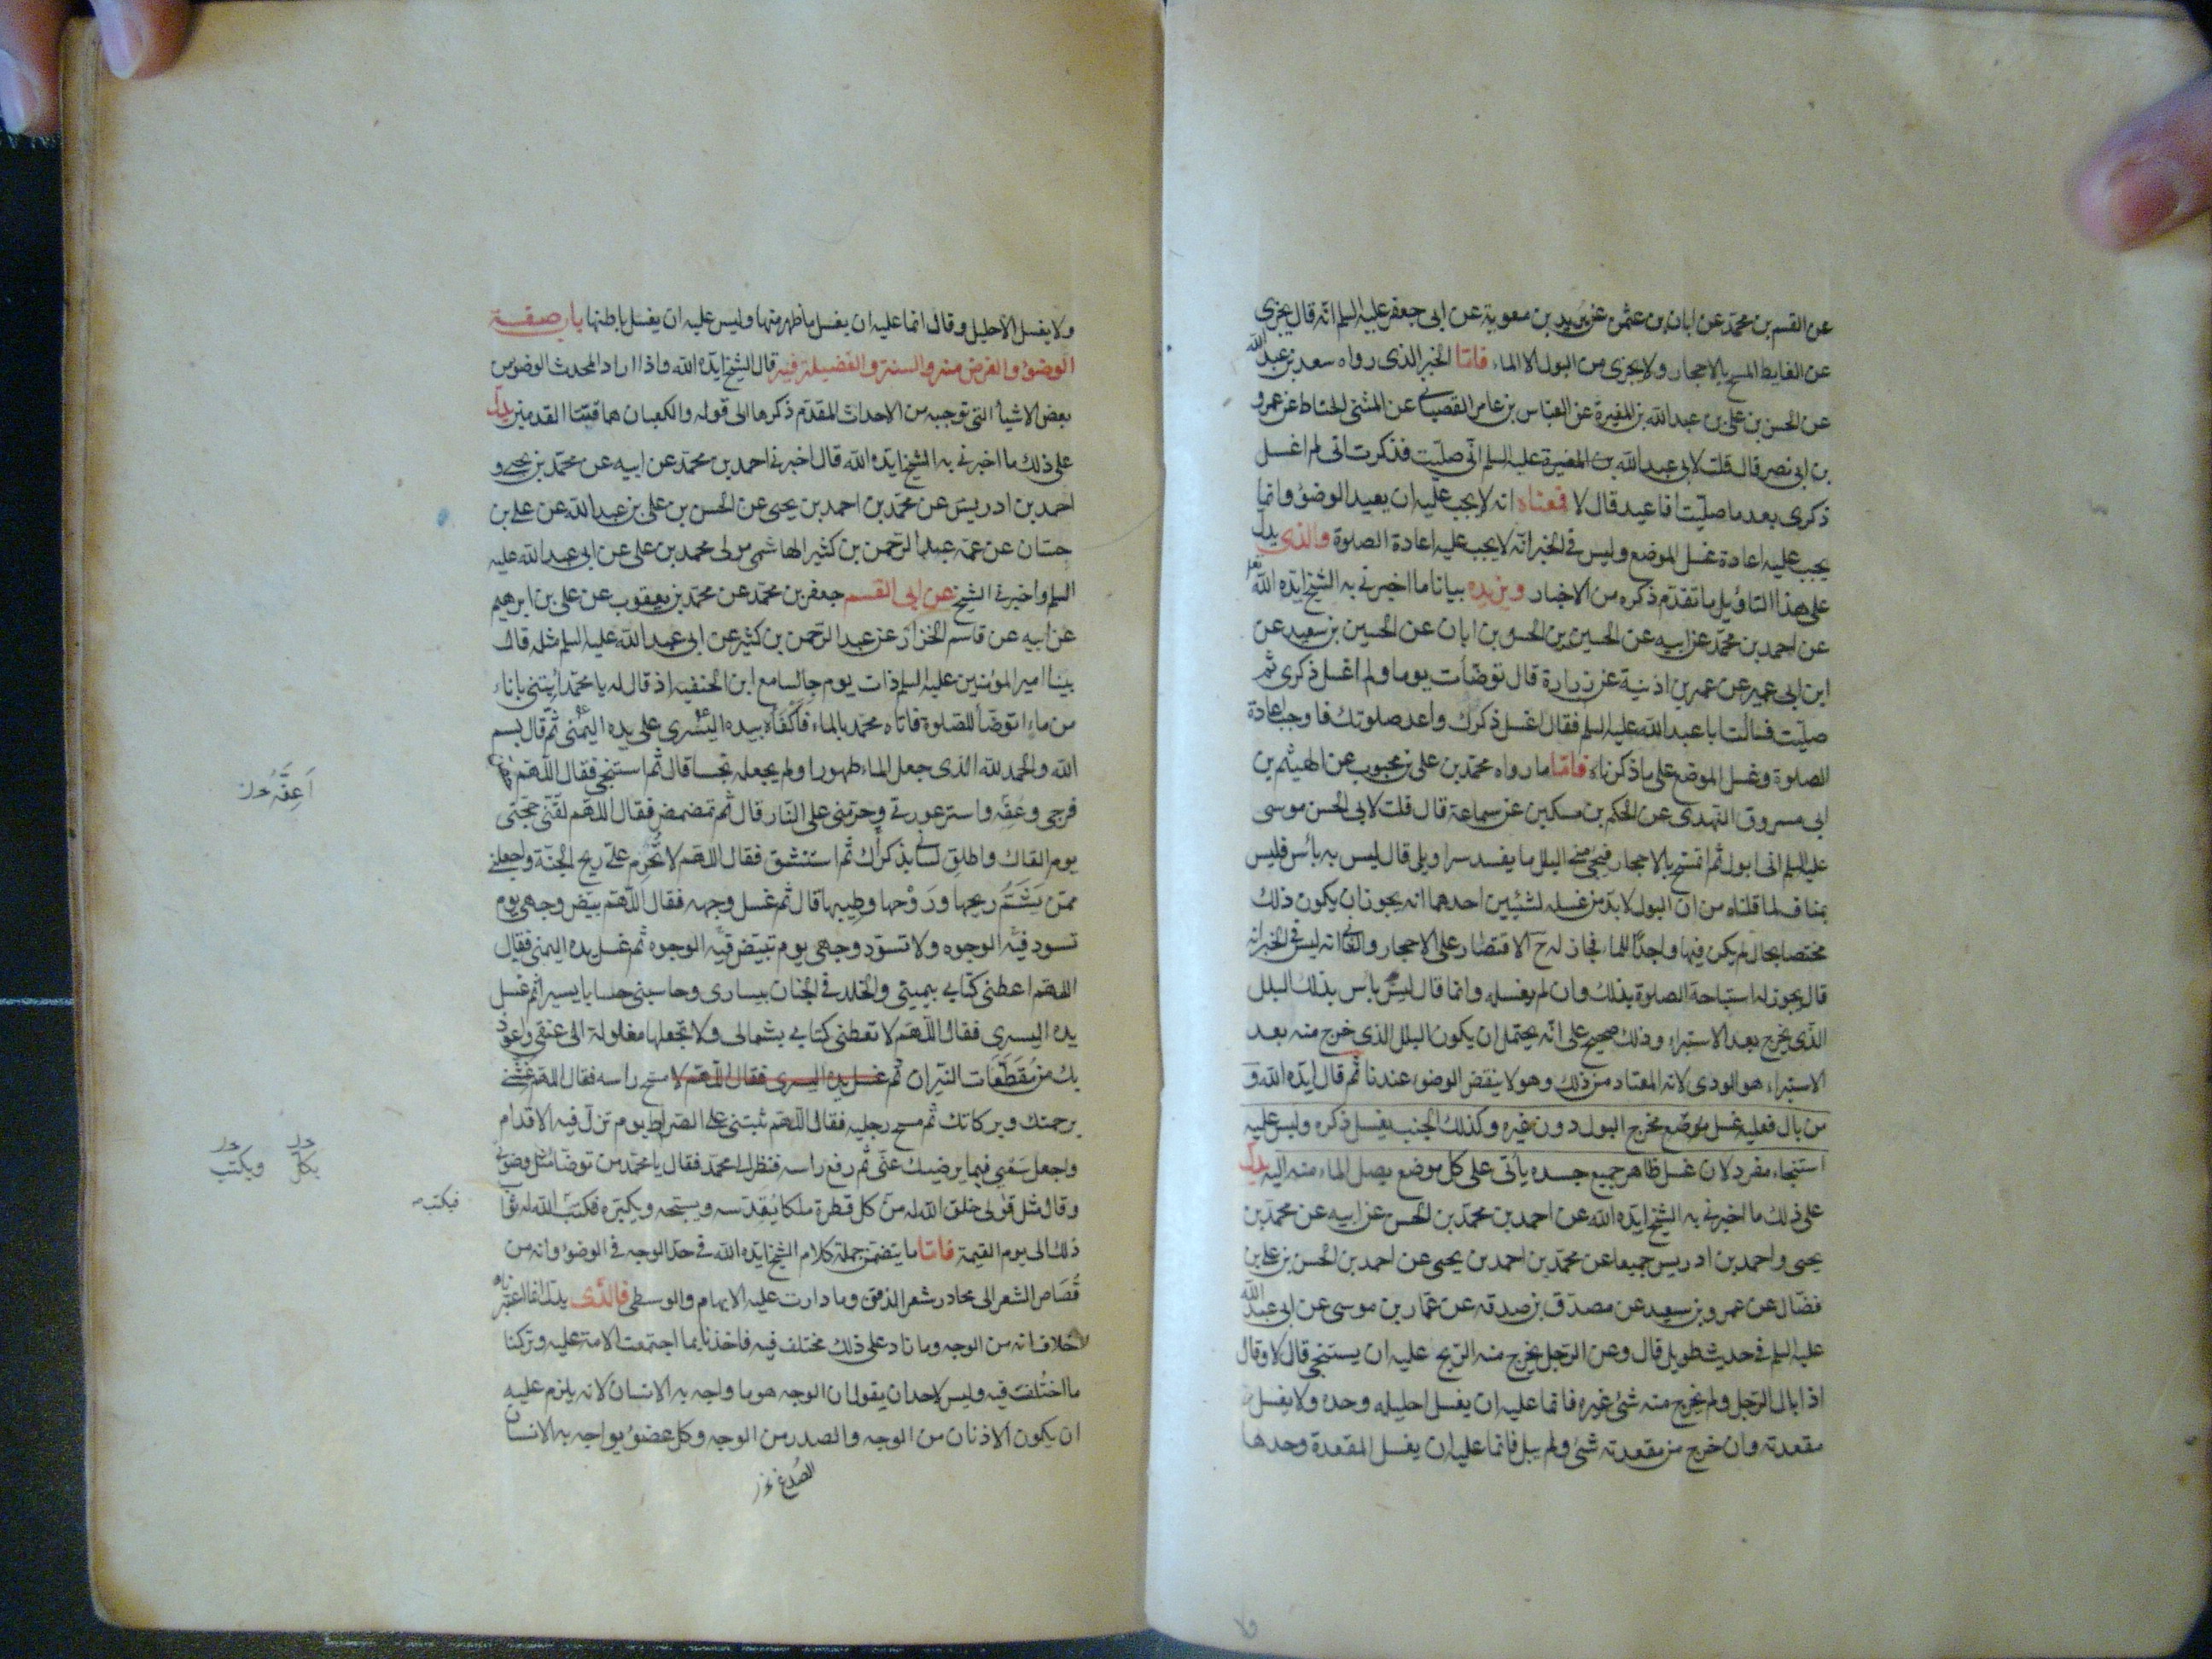 عن القسم بن محمد عن ابان بن عثمن عن بريد بن معوية عن ابى جعفر عليه السلم انه قال يجزى
عن الغايط المسح بالاحجار ولا يجزى من البول الا الماء فامّا الخبر الذى رواه سعد بن عبد الله
عن الحسن بن على بن عبد الله بن المغيرة عن العباس بن عامر القصبانى عن المثنى الحناط عن عمرو
بن ابى نصر قال قلت لابى عبد الله بن المغيرة عليه السلم انّى صلّيت فذكرت انّى لم اغسل
ذكرى بعد ما صلّيت افاعيد قال لا فمعناه انه لا يجب عليه ان يعيد الوضوء وانما
يجب عليه اعادة غسل الموضع وليس فى الخبر انّه لا يجب عليه اعادة الصلوة والذى يدل
على هذا التاويل ما تقدّم ذكره من الاخبار ويزيده بيانا ما اخبرنى به الشيخ ايّده الله
عن احمد بن محمّد عن ابيه عن الحسين بن الحسن بن ابان عن الحسين بن سعيد عن
ابن ابى عمير عن عمر بن اذنية عن زرارة قال توضّأت يوما ولم اغسل ذكرى ثم
صلّيت فسالت ابا عبد الله عليه السلم فقال اغسل ذكرك واعد صلوتك فاوجب اعادة
الصلوة وغسل الموضع على ما ذكرناه فامّا ما رواه محمّد بن على بن محبوب عن الهيثم بن
ابى مسروق النهدى عن الحكم بن مسكين عن سماعة قال قلت لابى الحسن موسى
عليه السلم انى ابول ثم اتمسّح بالاحجار فيجئ منى البلل ما يفسد سراويلى قال ليس به بأس فليس
بمناف لما قلناه من ان البول لا بدّ من غسله لشيئين احدهما انه يجوز ان يكون ذلك
مختصا بحال لم يكن فيها واجدًا للماء فجاز له ح الاقتصار على الاحجار والثانى انه ليس فى الخبر انه
قال يجوز له استباحة الصلوة بذلك وان لم يغسله وانما قال ليس بأس بذلك البلل
الّذى يخرج بعد الاستبراء وذلك صحيح على انّه يحتمل ان يكون البلل الذى خرج منه بعد
الاستبراء هو الودى لانه المعتاد من ذلك وهو لا ينقض الوضوء عندنا ثم قال ايّده الله و
من بال فعليه غسل موضع مخرج البول دون غيره وكذلك الجنب يغسل ذكره وليس عليه
استنجاء مفرد لان غسل ظاهر جميع جسده يأتى على كل موضع يصل الماء منه اليه يدل
على ذلك ما اخبرنى به الشيخ ايّده الله عن احمد بن محمّد بن الحسن عن ابيه عن محمّد بن
يحيى واحمد بن ادريس جميعا عن محمّد بن احمد بن يحيى عن احمد بن الحسن بن على بن
فضّال عن عمرو بن سعيد عن مصدّق بن صدقه عن عمّار بن موسى عن ابى عبد الله
عليه السلم فى حديث طويل قال وعن الرّجل يخرج منه الرّيح عليه ان يستنجى قال لا وقال
اذا بال الرّجل ولم يخرج منه شئ غيره فانما عليه ان يغسل احليله وحده ولا يغسل
مقعدته وان خرج من مقعدته شئ ولم يبل فانما عليه ان يغسل المقعدة وحدها
ولا
ولا يغسل الاحليل وقال انما عليه ان يغسل ما ظهر منها وليس عليه ان يغسل باطنها باب صفة
الوضوء والفرض منه والسنة والفضيلة فيه قال الشيخ ايّده الله واذا اراد المحدث الوضوء من
بعض الاشياء التى توجبه من الاحداث المقدّم ذكرها الى قوله والكعبان هما قبّتا القدمين يدل
على ذلك ما اخبرنى به الشيخ ايّده الله قال اخبرنى احمد بن محمّد عن ابيه عن محمّد بن يحيى و
احمد بن ادريس عن محمّد بن احمد بن يحيى عن الحسن بن على بن عبد الله عن على بن
حسّان عن عمه عبد الرّحمن بن كثير الهاشمى مولى محمد بن على عن ابى عبد الله عليه
السلم واخبرنى الشيخ عن ابى القسم جعفر بن محمّد عن محمّد بن يعقوب عن على بن ابرهيم
عن ابيه عن قاسم الخزاز عن عبد الرّحمن بن كثير عن ابى عبد الله عليه السلم مثله قال
بينا امير المؤمنين عليه السلم ذات يوم جالسا مع ابن الحنفيه اذ قال له يا محمّد ايتنى باناء
من ماء اتوضّأ للصّلوة فاتاه محمّد بالماء فأكفأه بيده اليسرى على يده اليمنى ثم قال بسم
الله والحمد لله الذى جعل الماء طهورا ولم يجعله نجسا قال ثم استنجى فقال اللّهمّ حصّن
فرجى وعفّه واستر عورتى وحرّمنى على النّار قال ثم تمضمض فقال اللهمّ لقّنّى حجّتى
يوم القاك واطلق لسانى بذكرك ثم استنشق فقال اللهمّ لا تحرّم علىّ ريح الجنّة واجعلنى
ممّن يشتمّ ريحها ورَوْحها وطيبها قال ثم غسل وجهه فقال اللّهم بيّض وجهى يوم
تسود فيه الوجوه ولا تسوّد وجهى يوم تبيّض فيه الوجوه ثم غسل يده اليمنى فقال
اللهمّ اعطنى كتابى بيمينى والخلد فى الجنان بيسارى وحاسبنى حسابا يسيرا ثم غسل
يده اليسرى فقال اللّهمّ لا تعطنى كتابى بشمالى ولا تجعلها مغلولة الى عنقى واعوذ
بك من مُقَطّعات النّيران ثم غسل يده اليسرى فقال اللّهمّ لا مسح راسه فقال اللهمّ غشّنى
برحمتك وبركاتك ثم مسح رجليه فقال اللّهمّ ثبّتنى على الصّراط يوم تزلّ فيه الاقدام
واجعل سَعْيى فيما يرضيك عنّى ثم رفع راسه فنظر الى محمّد فقال يا محمّد من توضّأ مثل وضوئى
وقال مثل قولى خلق الله له من كل قطرة ملكا يُقدّسه ويسبّحه ويكبّره فكتب الله له ثواب
ذلك الى يوم القيمة فامّا ما يتضمّن جملة كلام الشيخ ايّده الله فى حدّ الوجه فى الوضوء وانه من
قُصَاص الشعر الى محادر شعر الذقن وما دارت عليه الابهام والوسطى فالّذى يدل
خلاف انه من الوجه وما زاد على ذلك مختلف فيه فاخذنا بما اجتمعت الامة عليه وتركنا
ما اختُلفت فيه وليس لاحد ان يقول ان الوجه هو ما واجه به الانسان لانه يلزم عليه
ان يكون الاذنان من الوجه والصدر من الوجه وكل عضو يواجه به الانسان
اَعِفَّهُ
بكل ويكتب
فيكتب
الصُدغ